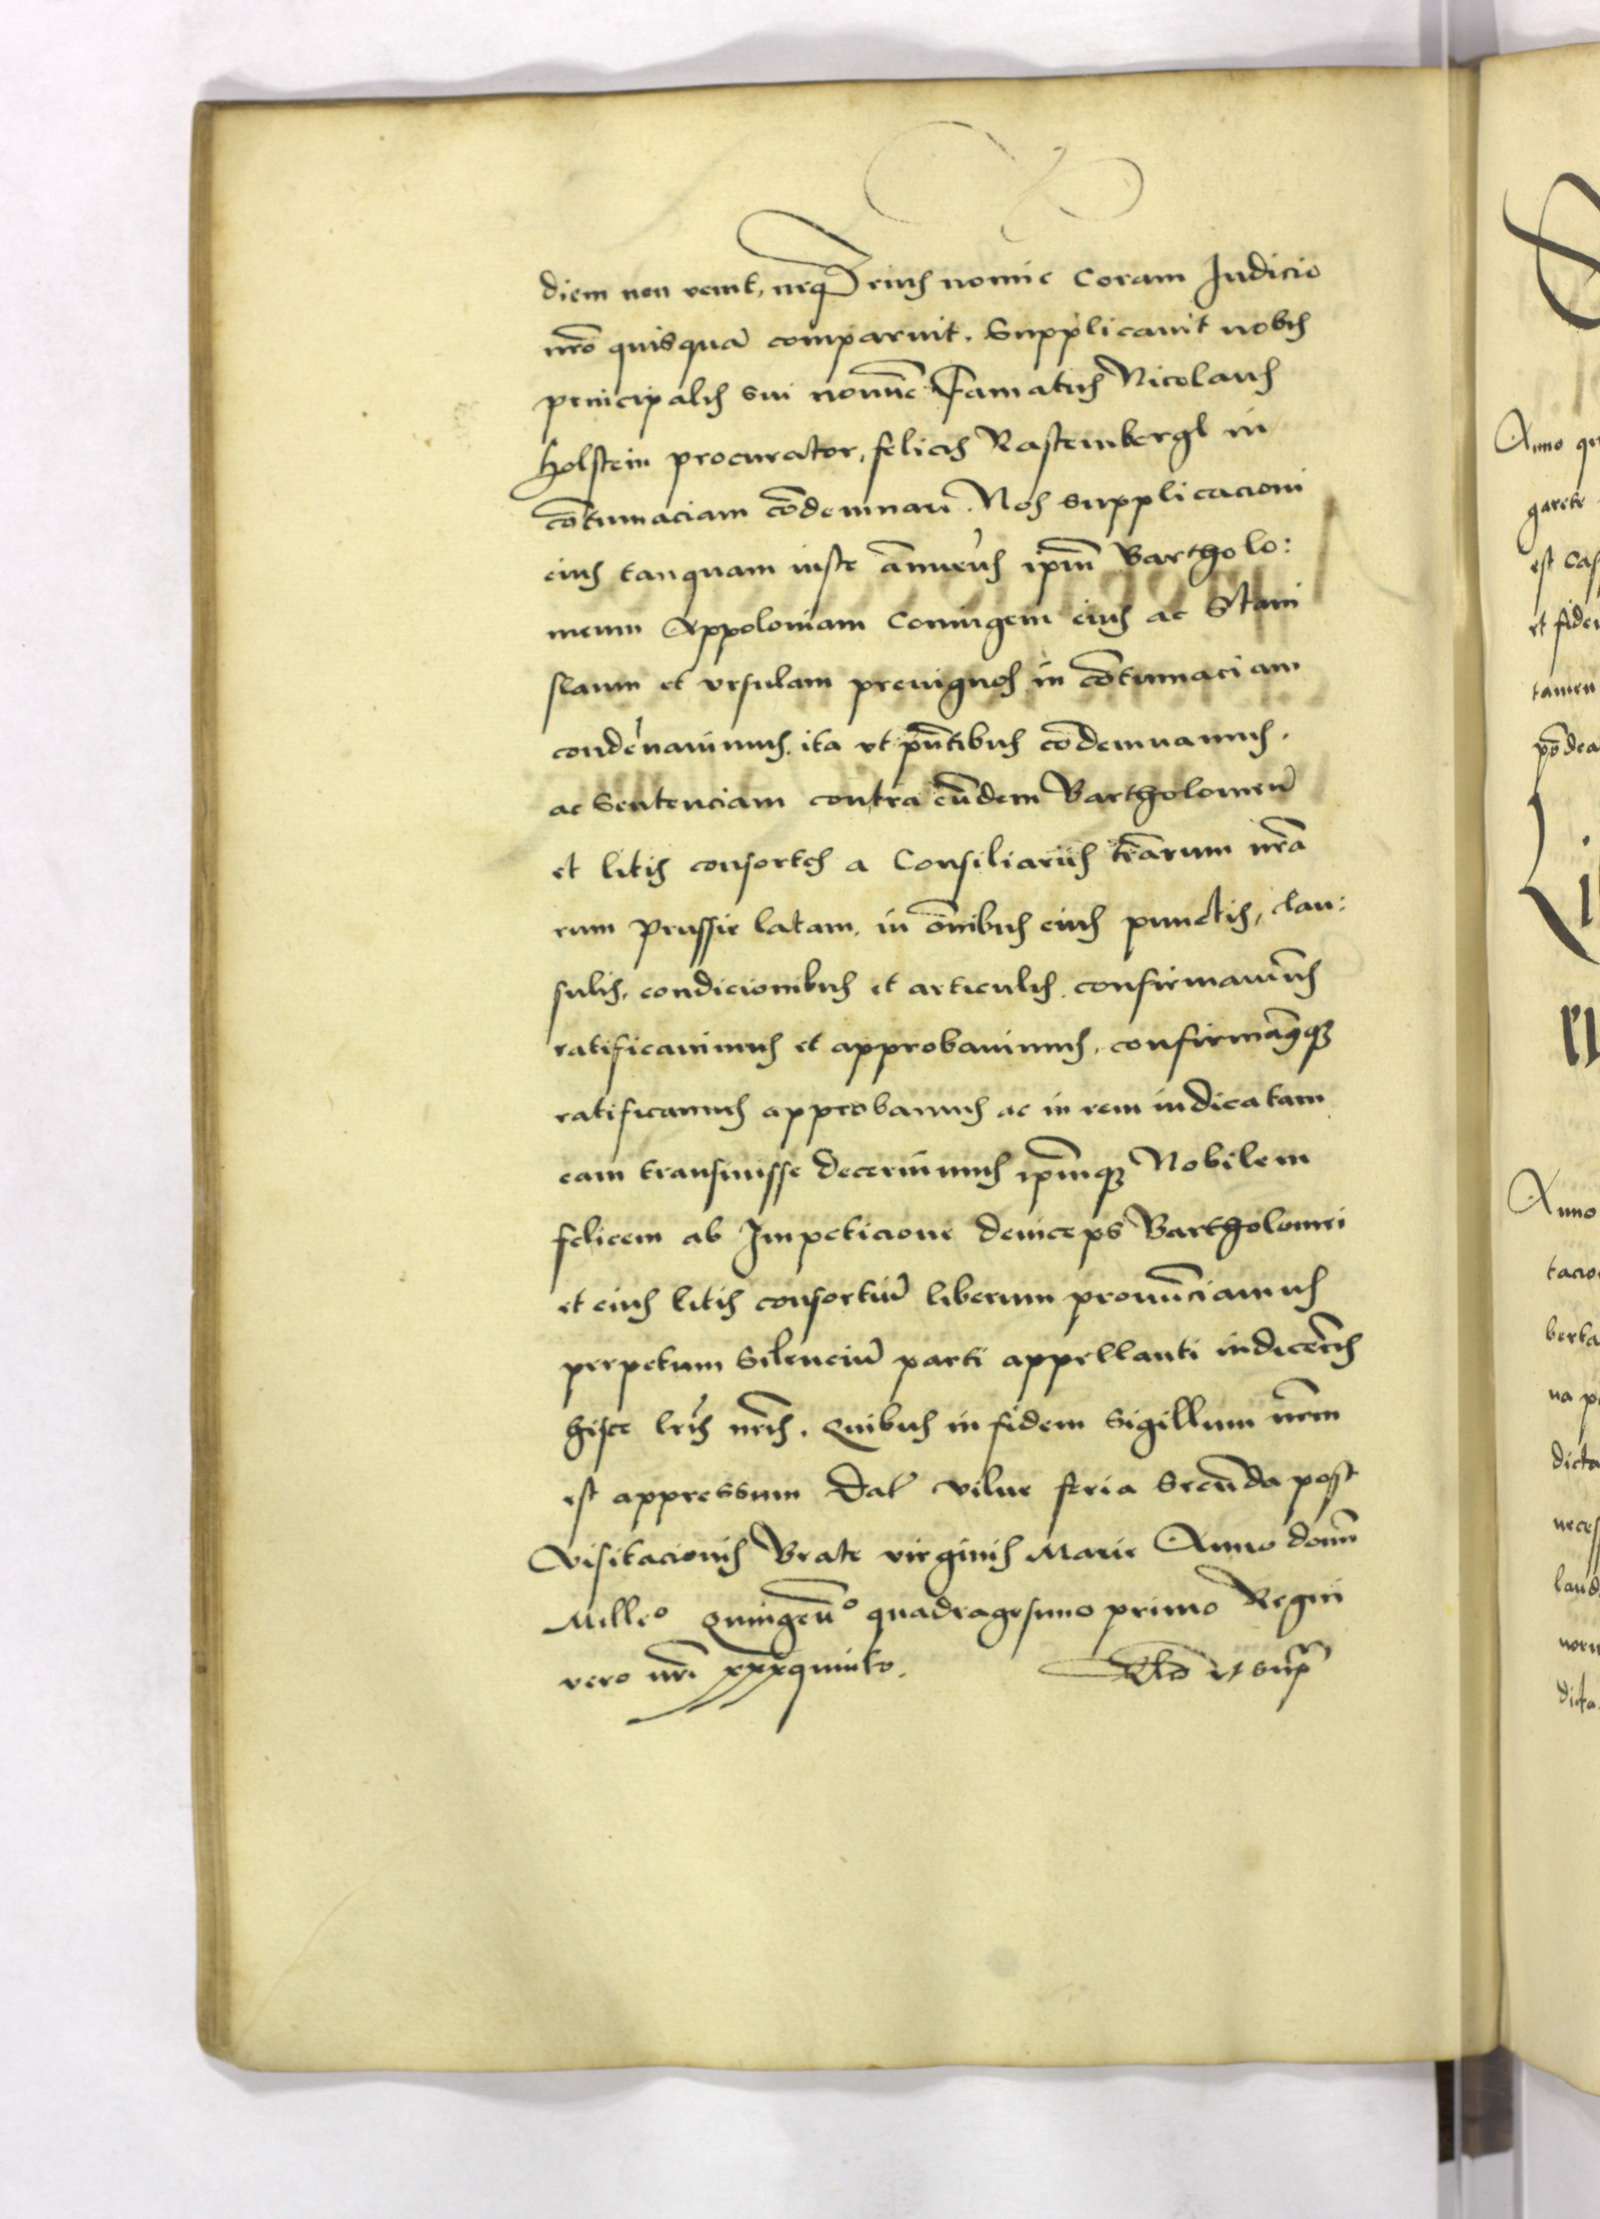 diem non venit, neq3 eius nomine Coram Judicio
nr̃o quisquā comparuit. Supplicauit nobis
principalis sui nomine Famatus Nicolaus
holstein procurator, felicis Rastembergk in
cōtumaciam cōdemnari. Nos supplicacioni
eius tanquam iuste annuen̄s ip̄m Bartholo:
meum Appoloniam Coniugem eius ac Stani
slaum et vrsulam preuignos in cōtumaciam
condēnauimus. ita vt pn̄tibus cōdemnamus.
ac Sentenciam contra eūdem Bartholomeū
et litis consortes a Consiliariis tr̄arum nr̄a
rum Prussie latam, in om̄ibus eius punctis, clau:
sulis, condicionibus et articulis confirmauim̄s
ratificauimus et approbauimus, confirmamusq3
ratificamus approbamus ac in rem iudicatam
eam transiuisse decernimus ip̄mq3 Nobilem
felicem ab Impeticione deinceps Bartholomei
et eius litis consortiū liberum pronūciamus
perpetuum Silenciū parti appellanti indicen̄tes
hisce lr̄is nr̄is. Quibus in fidem Sigillum nr̄m
est appressum Dat̄ Vilne feria Secūda post
Visitacionis Beate virginis Marie Anno domini
Mille° Quingen̄° quadragesimo primo Regni
vero nr̄i xxxquinto. R̄lo vt supr̄
Anno
garete
est Cas
et fide
tamen
Anno
tacio
berta
na p
dicta
neces
laud
dicta